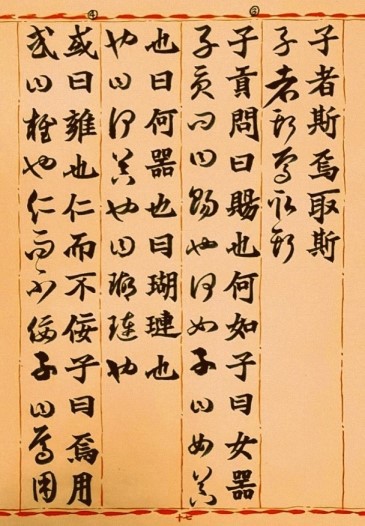 子者斯焉取斯
子者斯焉取斯
③
子貢問曰賜也何如子曰女器
子貢問曰賜也何如子曰女器
也曰何器也曰瑚璉也
也曰何器也曰瑚璉也
④
或曰雍也仁而不佞子曰焉用
或曰雍也仁而不佞子曰焉用
十七